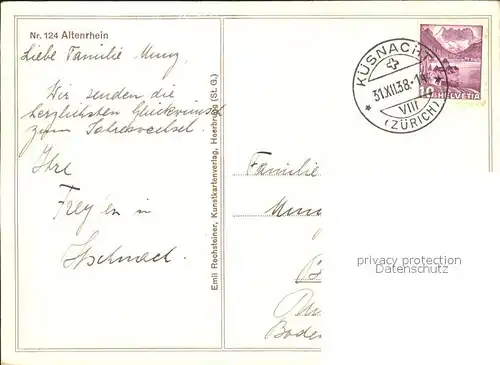 Nr. 124 Altenrhein
Liebe Familie Munz,
Wir senden die
herzlichsten Glückwunsch
zum Jahreswechsel.
Ihre
Frey'en in
Emil Rechsteiner, Kunstkartenverlag, Heerbrugg (St. G.)
KÜSNACHT
31.XII.38.
VIII
(ZÜRICH)
HELVETIA
Familie
privacy protection
Datenschutz
Boden